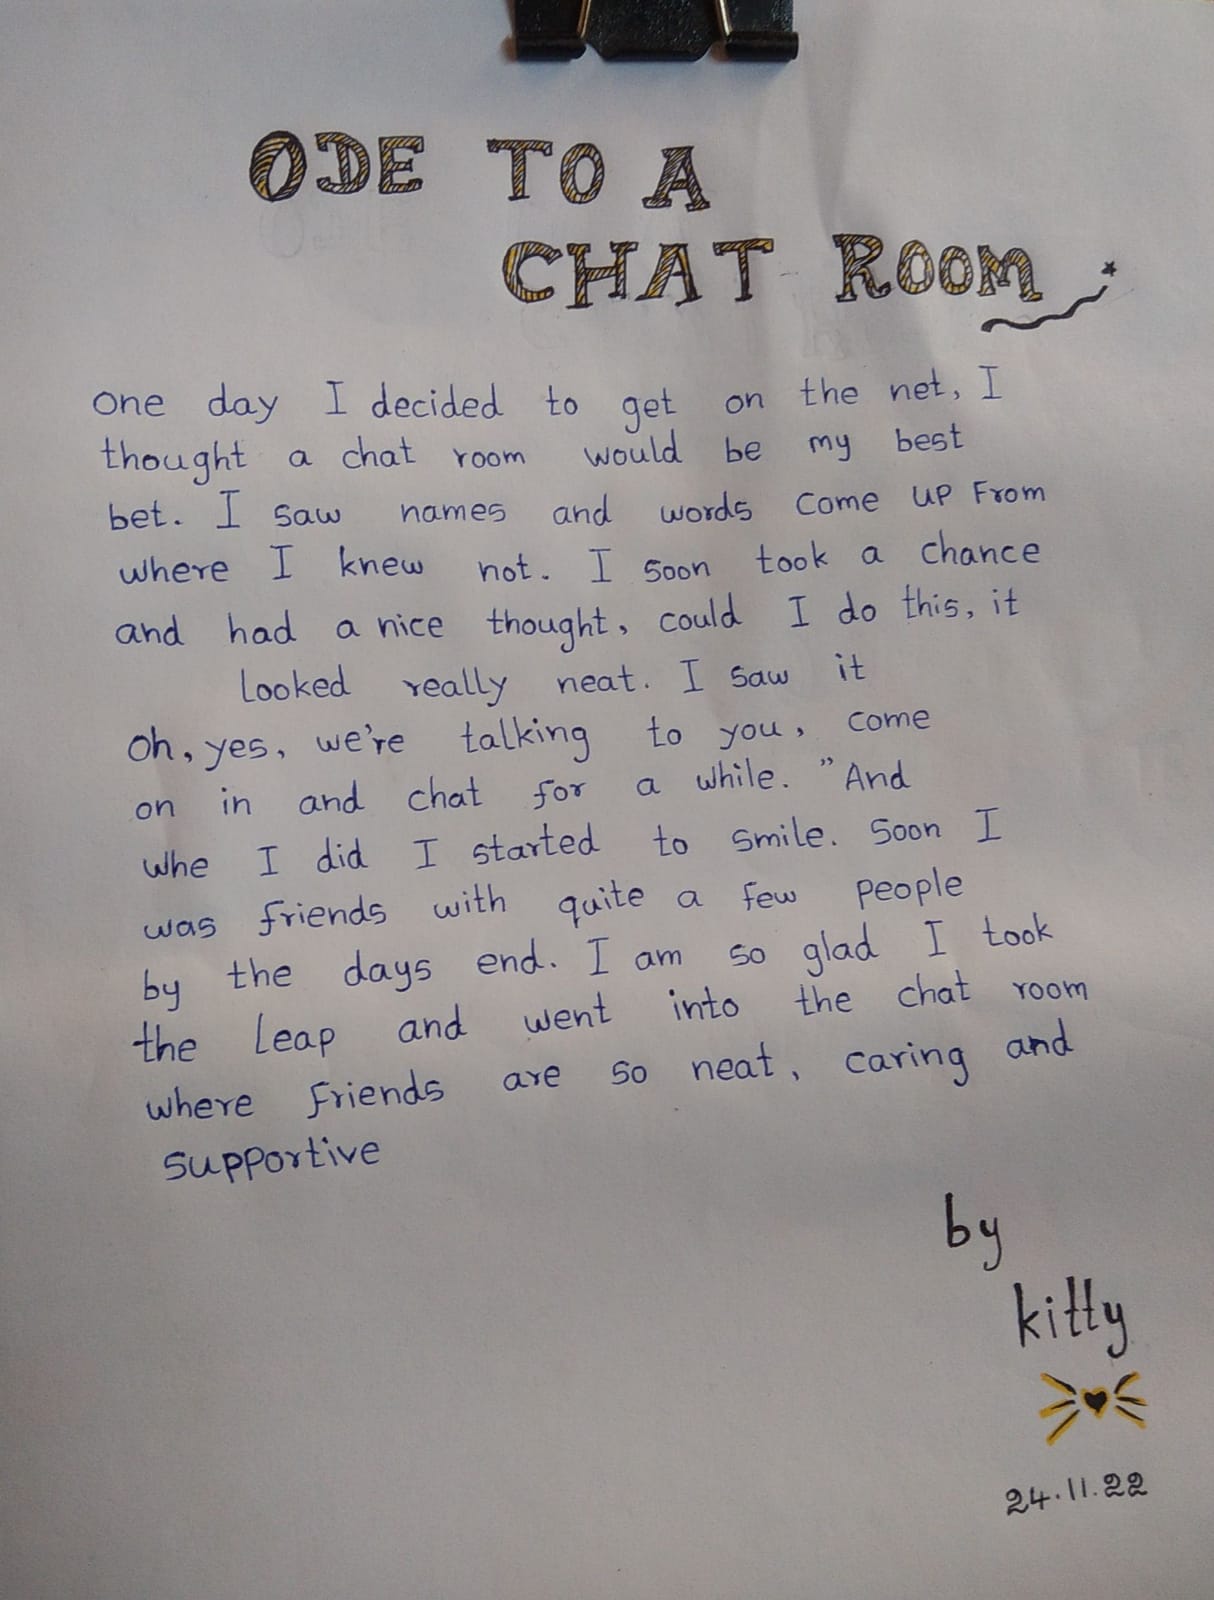 ODE TO A
CHAT ROOM
One day I decided to get on the net, I
thought a chat room would be my best
bet. I saw names and words come up From
where I knew not. I soon took a chance
and had a nice thought, could I do this, it
Looked really neat. I saw it
Oh, yes, we're talking to you, come
on in and chat for a while. " And
whe I did I started to smile. Soon I
was friends with quite a few people
by the days end. I am so glad I took
the Leap and went into the chat room
where Friends are so neat, caring and
supportive
by
kitty
24.11.22